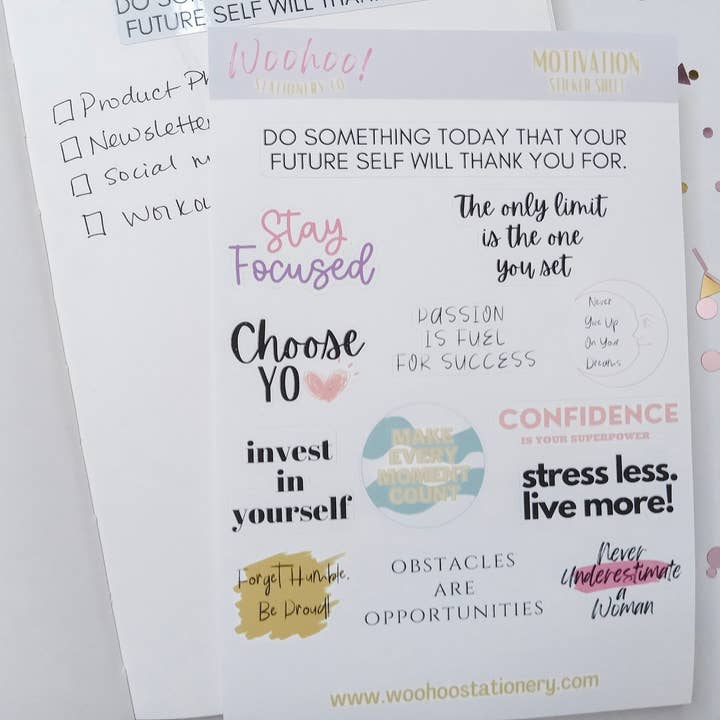 DO SOMETHING
FUTURE SELF WILL THANK
Product
Newsletter
Social
Woohoo!
STATIONERY CO
MOTIVATION
STICKER SHEET
DO SOMETHING TODAY THAT YOUR
FUTURE SELF WILL THANK YOU FOR.
Stay
Focused
The only limit
is the one
you set
Choose
YO
PASSION
IS FUEL
FOR SUCCESS
Never
Give Up
On Your
Dreams
invest
in
yourself
MAKE
EVERY
MOMENT
COUNT
CONFIDENCE
IS YOUR SUPERPOWER
stress less.
live more!
Forget Humble.
Be Proud!
OBSTACLES
ARE
OPPORTUNITIES
Never
Underestimate
a
Woman
www.woohoostationery.com